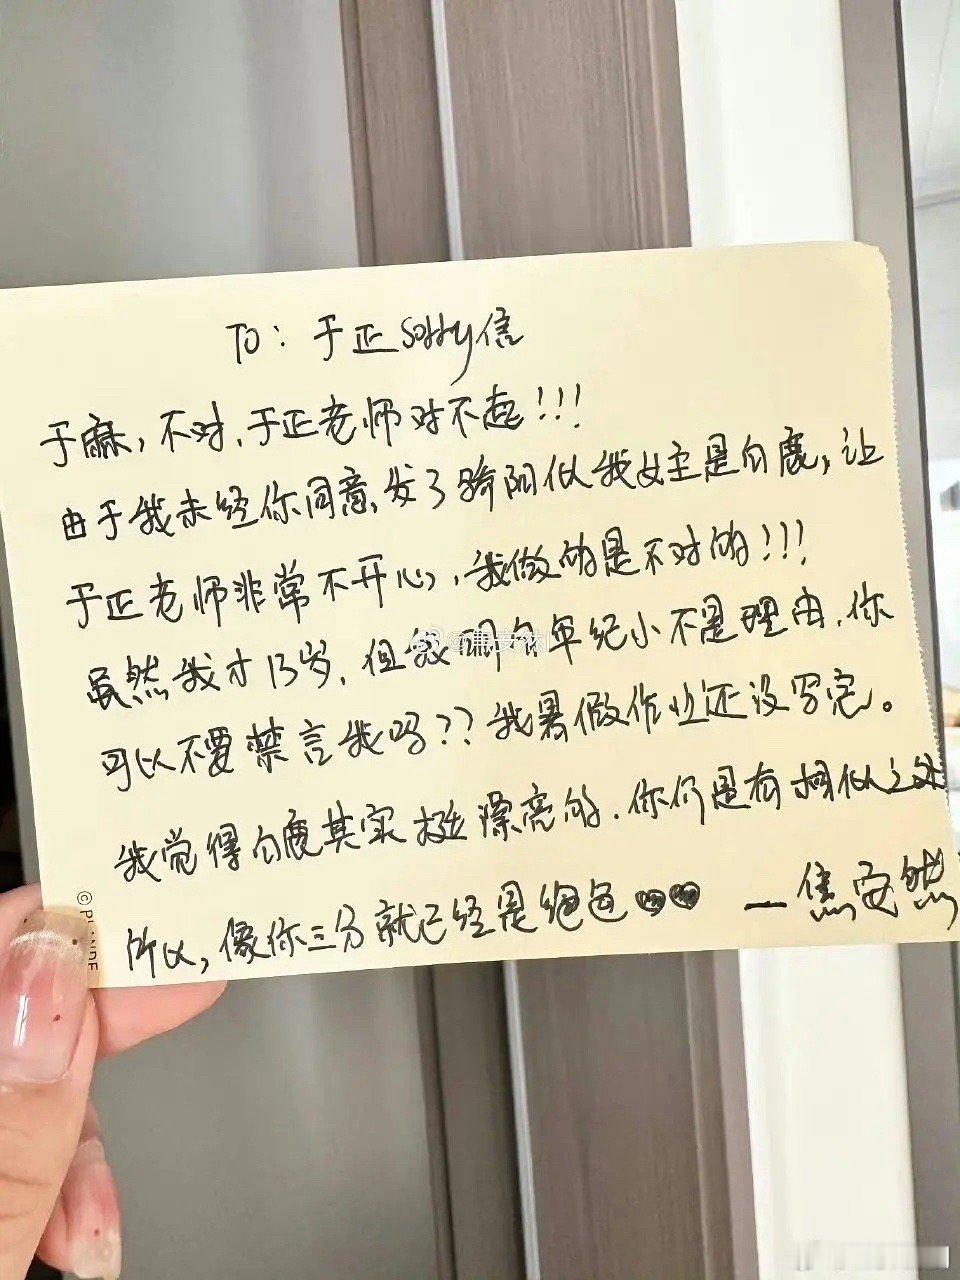 To：于正sorry信
于麻，不对，于正老师对不起！！！
由于我未经你同意，发了骄阳似我女主是白鹿，让
于正老师非常不开心，我做的是不对的！！！
虽然我才13岁，但我明白年纪小不是理由，你
可以不要禁言我吗？？我暑假作业还没写完。
我觉得白鹿其实挺漂亮的，你们是有相似之处
所以，像你三分就已经是绝色
—焦安然
© PLANDE